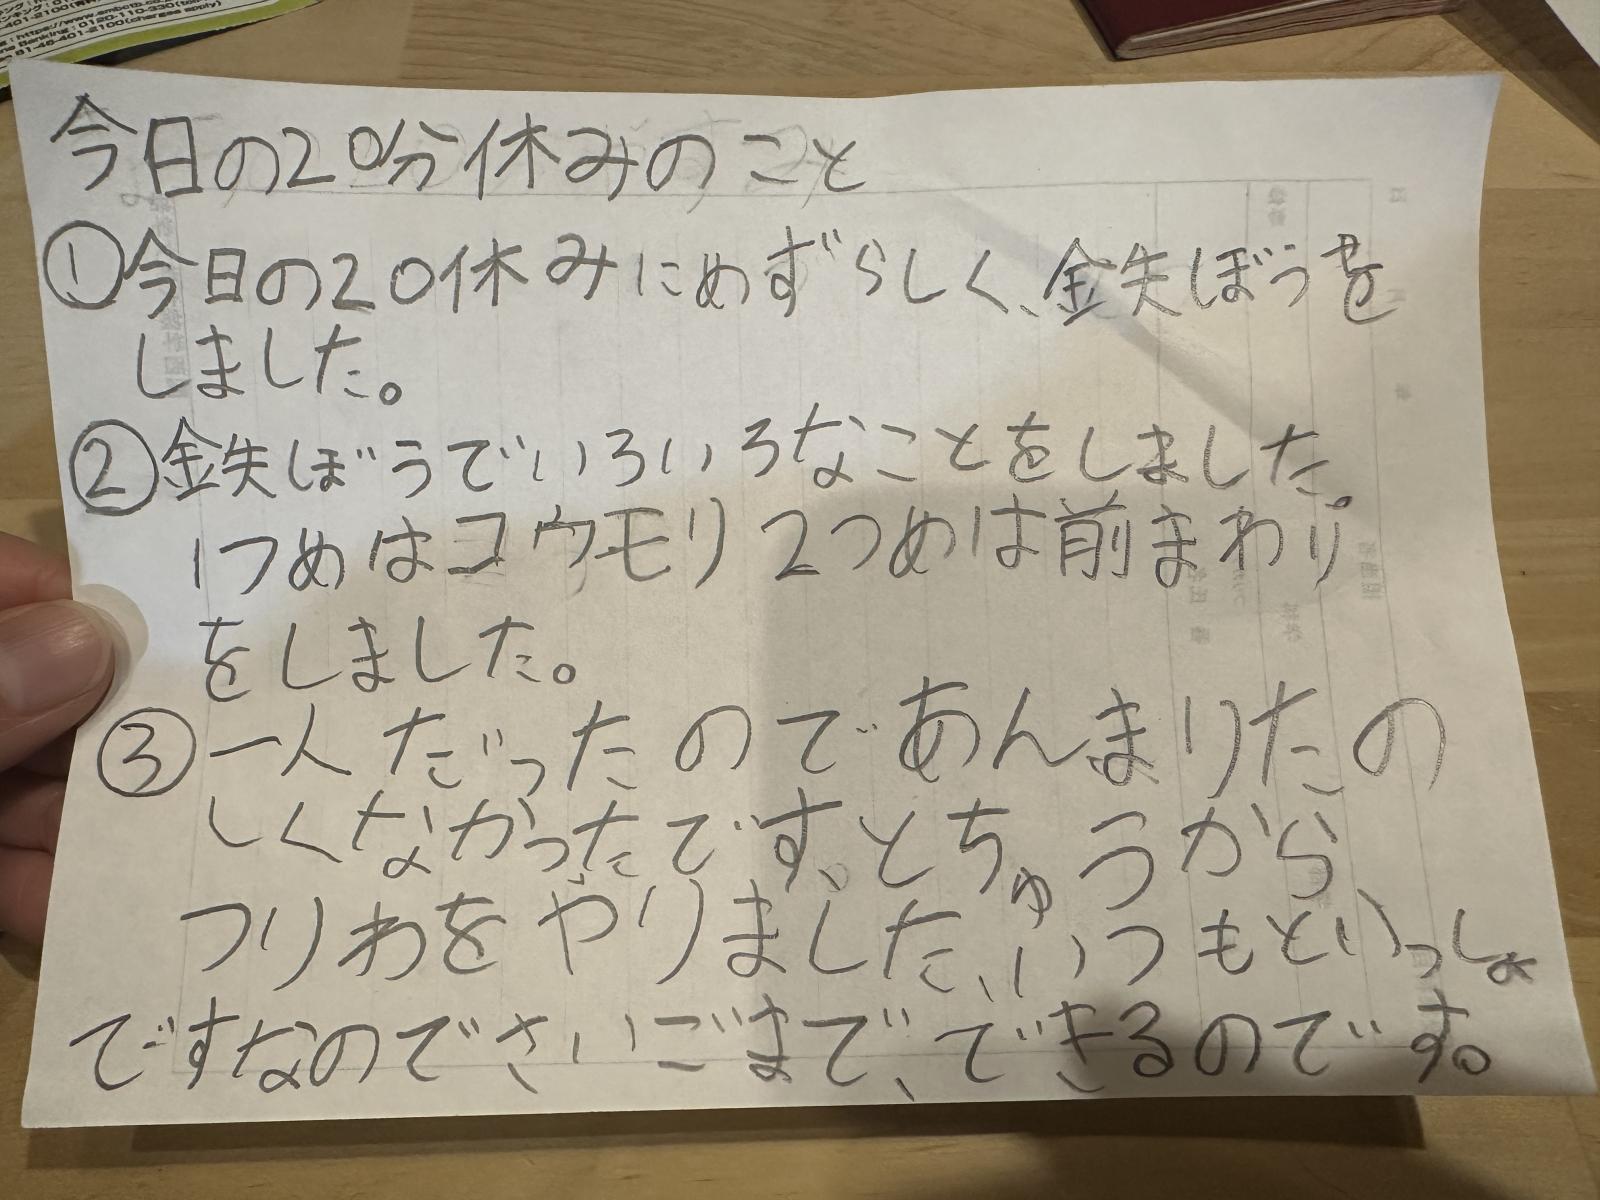 https://www.smbctb.co.
0120-110-330(
81-46-401-2100(charges apply)
今日の20分休みのこと
①今日の20休みにめずらしく、鉄ぼうを
しました。
②鉄ぼうでいろいろなことをしました。
1つめはコウモリ2つめは前まわり
をしました。
③一人だったのであんまりたの
しくなかったです。とちゅうから
つりわをやりました、いつもといっしょ
ですなのでさいごまで、できるのです。